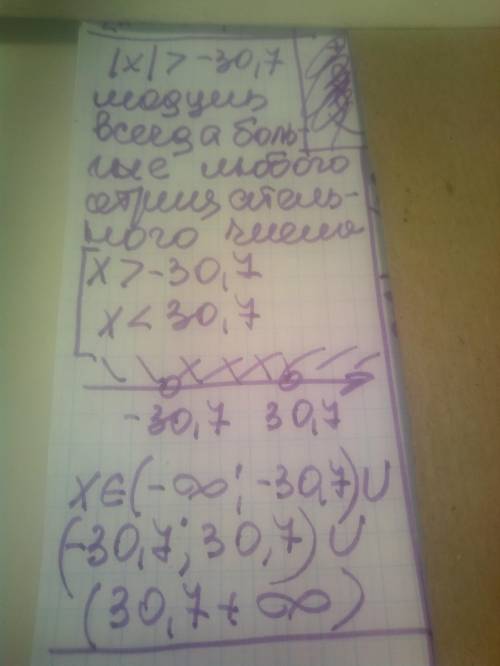 |x| > -30,7
модуль
всегда боль-
ше любого
отрицатель-
ного числа
[x > -30,7
x < 30,7
-30,7 30,7
x∈(-∞; -30,7)∪
(-30,7; 30,7)∪
(30,7+∞)